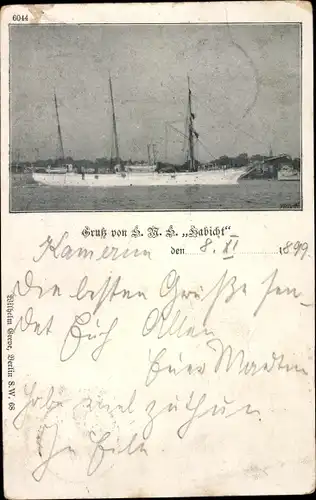 6044
Gruß von S. M. S. „Habicht“
Kamerun den 8. XI 1899
Die besten Grüße sen-
det Euch Allen
Euer
habe viel zu thun.
In Eile.
Wilhelm Greve, Berlin S. W. 68